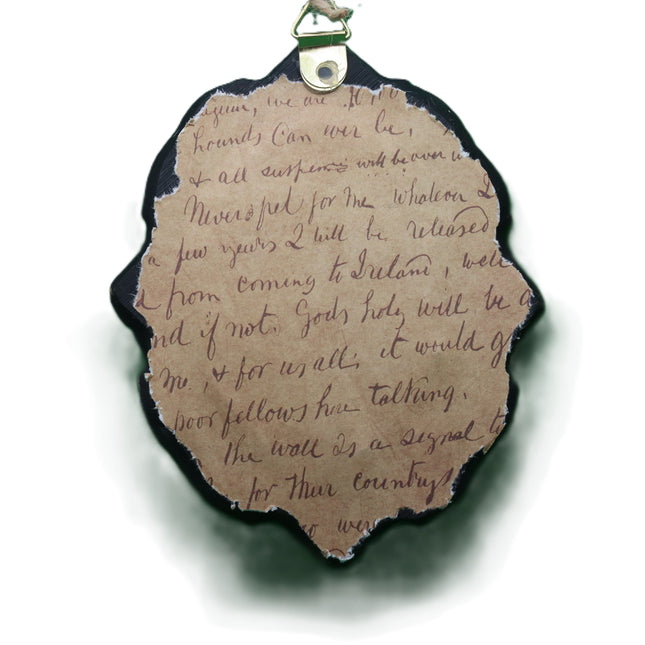 we are
hounds Can wer be,
& all suspense will be over
Never for me whatever I
a few years I will be released
from coming to Ireland, well
nd if not. Gods holy will be a
me, & for us all; it would g
poor fellows here talking.
the wall is a signal t
for their countrys
wer